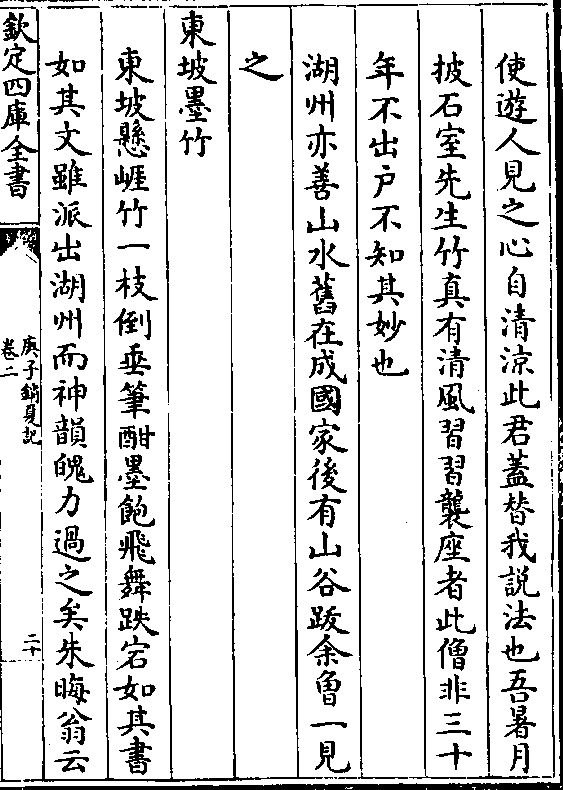 使遊人見之心自清涼此君蓋替我説法也吾暑月
披石室先生竹真有清風習習襲座者此僧非三十
年不出户不知其妙也
湖州亦善山水舊在成國家後有山谷跋余曾一見
之
東坡墨竹
東坡懸崖竹一枝倒垂筆酣墨飽飛舞跌宕如其書
如其文雖派出湖州而神韻魄力過之矣朱晦翁云
欽定四庫全書
庚子銷夏記
卷二
二十